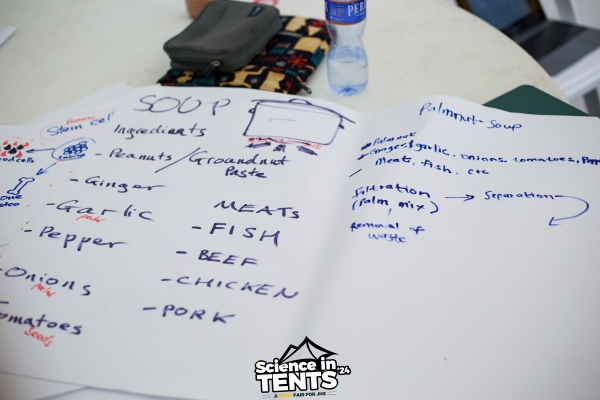 PER
Human
Stem Cell
SOUP
Ingredients
- Peanuts / Groundnut
Paste
- Ginger
- Garlic
- Pepper
- Onions
Tomatoes
Seeds
MEATs
- FISH
- BEEF
- CHICKEN
- PORK
Palmnut Soup
Palmnut
Ginger, garlic, onions, tomatoes,
Meats, fish, etc
filtration → Separation
(Palm mix)
Removal of
waste
Science in
TENTS '24
FAIR FOR JHS